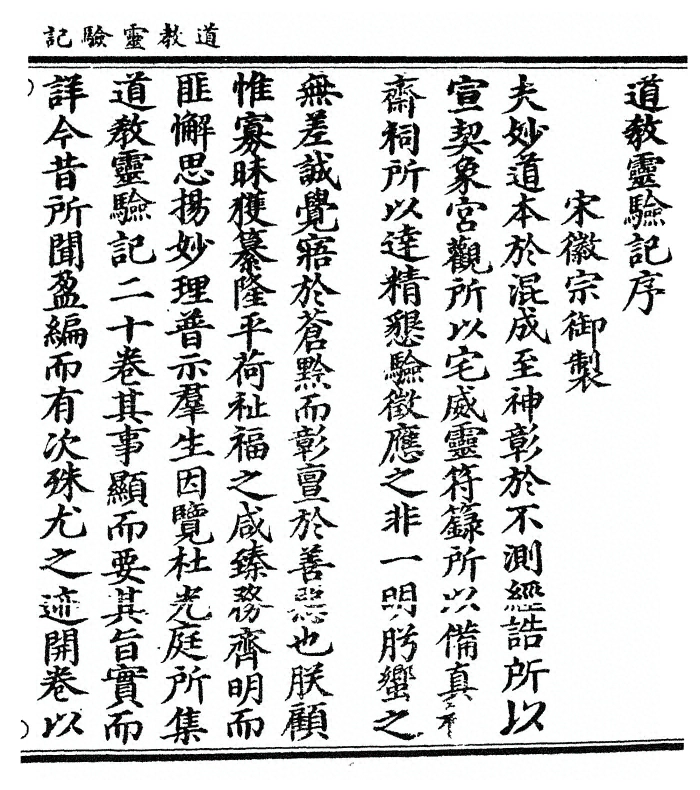 道教靈驗記
道教靈驗記序
宋徽宗御製
夫妙道本於混成至神彰於不測經誥所以
宣契象宮觀所以宅威靈符籙所以備真
齋祠所以達精懇驗徵應之非一明肹蠁之
無差誠覺寤於蒼黔而彰亶於善惡也朕顧
惟寡昧獲纂隆平荷祉福之咸臻務齊明而
匪懈思揚妙理普示羣生因覽杜光庭所集
道教靈驗記二十卷其事顯而要其旨實而
詳今昔所聞盈編而有次殊尤之迹開卷以